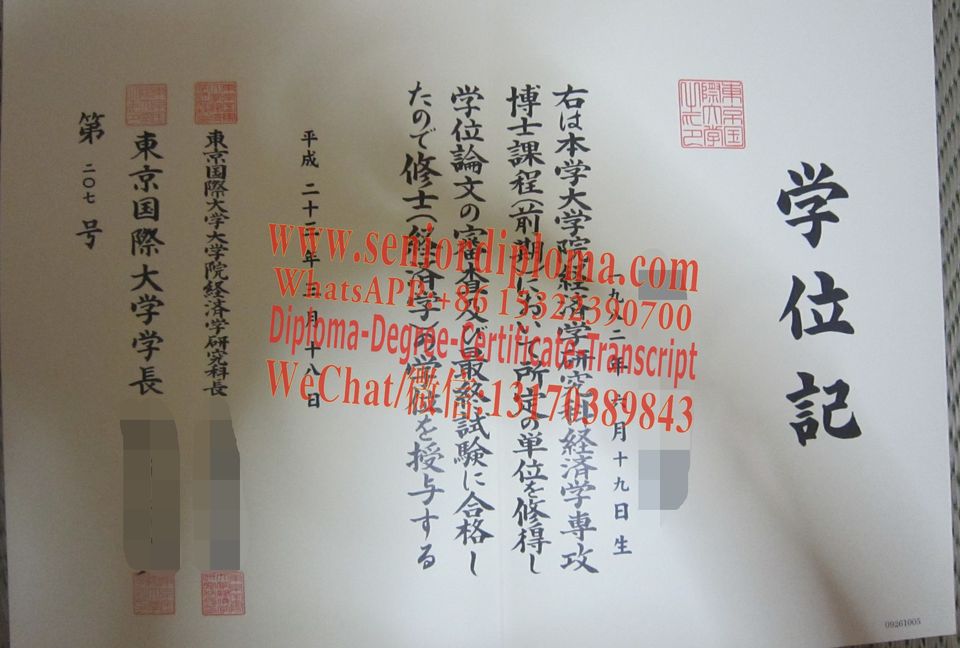 学位記
東京国際大学之印
一九八二年 六月十九日生
右は本学大学院経済学研究科経済学専攻
博士課程(前期)において所定の単位を修得し
学位論文の審査及び最終試験に合格し
たので修士(経済学)の学位を授与する
平成 二十二年三月十八日
東京国際大学大学院経済学研究科長
東京国際大学学長
第 二〇七 号
www.seniordiploma.com
WhatsAPP:+86 15322390700
Diploma-Degree-Certificate-Transcript
WeChat/微信:13170389843
09261005